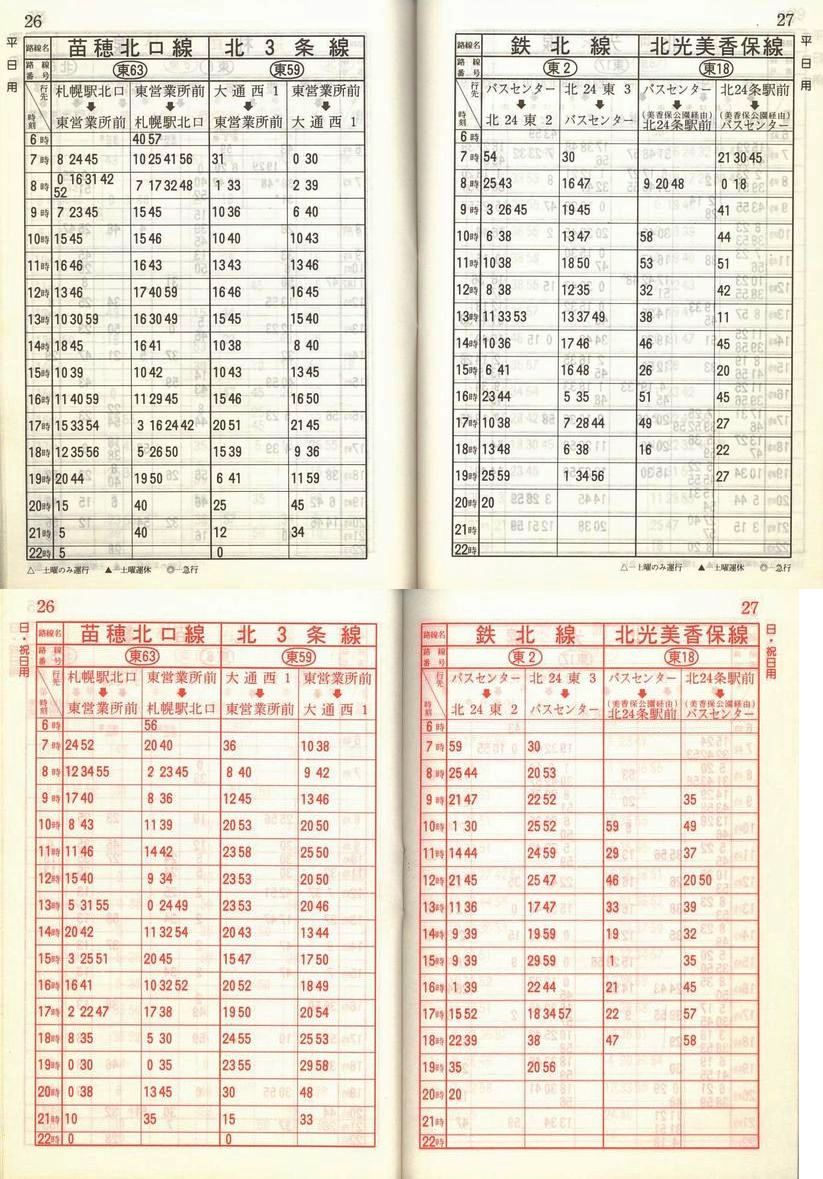 26
平日用
路線名 苗穂北口線 北3条線
路線番号 東63 東59
行先 時刻 札幌駅北口 東営業所前 大通西1 東営業所前
東営業所前 札幌駅北口 東営業所前 大通西1
6時 40 57
7時 8 24 45 10 25 41 56 31 0 30
8時 0 16 31 42 52 7 17 32 48 1 33 2 39
9時 7 23 45 15 45 10 36 6 40
10時 15 45 15 46 10 40 10 43
11時 16 46 16 43 13 43 13 46
12時 13 46 17 40 59 16 46 16 45
13時 10 30 59 16 30 49 15 45 15 40
14時 18 45 16 41 10 38 8 40
15時 10 39 10 42 10 43 13 45
16時 11 40 59 11 29 45 15 46 16 50
17時 15 33 54 3 16 24 42 20 51 21 45
18時 12 35 56 5 26 50 15 39 9 36
19時 20 44 19 50 6 41 11 59
20時 15 40 25 45
21時 5 40 12 34
22時 5 0
△—土曜のみ運行 ▲—土曜運休 ◎—急行
27
平日用
路線名 鉄北線 北光美香保線
路線番号 東2 東18
行先 時刻 バスセンター 北24東3 バスセンター 北24条駅前
北24東2 バスセンター (美香保公園経由)北24条駅前 (美香保公園経由)バスセンター
6時
7時 54 30 21 30 45
8時 25 43 16 47 9 20 48 0 18
9時 3 26 45 19 45 41
10時 6 38 13 47 58 44
11時 10 38 18 50 53 51
12時 8 38 12 35 32 42
13時 11 33 53 13 37 49 38 11
14時 10 36 17 46 46 45
15時 6 41 16 48 26 20
16時 23 44 5 35 51 45
17時 10 38 7 28 44 49 27
18時 13 48 6 38 16 22
19時 25 59 1 34 56 27
20時 20
21時
22時
△—土曜のみ運行 ▲—土曜運休 ◎—急行
26
日・祝日用
路線名 苗穂北口線 北3条線
路線番号 東63 東59
行先 時刻 札幌駅北口 東営業所前 大通西1 東営業所前
東営業所前 札幌駅北口 東営業所前 大通西1
6時 56
7時 24 52 20 40 36 10 38
8時 12 34 55 2 23 45 8 40 9 42
9時 17 40 8 36 12 45 13 46
10時 8 43 11 39 20 53 20 50
11時 11 46 14 42 23 58 25 50
12時 15 40 9 34 23 53 20 50
13時 5 31 55 0 24 49 23 53 20 46
14時 20 42 11 32 54 20 43 13 44
15時 3 25 51 20 45 15 47 17 50
16時 16 41 10 32 52 20 52 18 49
17時 2 22 47 17 38 19 50 20 54
18時 8 35 5 30 24 55 25 53
19時 0 30 0 35 23 55 29 58
20時 0 38 13 45 30 48
21時 10 35 15 33
22時 0 0
27
日・祝日用
路線名 鉄北線 北光美香保線
路線番号 東2 東18
行先 時刻 バスセンター 北24東3 バスセンター 北24条駅前
北24東2 バスセンター (美香保公園経由)北24条駅前 (美香保公園経由)バスセンター
6時
7時 59 30
8時 25 44 20 53
9時 21 47 22 52 35
10時 1 30 25 52 59 49
11時 14 44 24 59 29 37
12時 21 45 25 47 46 20 50
13時 11 36 17 47 33 39
14時 9 39 19 59 19 32
15時 9 39 29 59 1 35
16時 1 39 22 44 21 45
17時 15 52 18 34 57 22 57
18時 22 39 38 47 58
19時 35 20 56
20時 20
21時
22時